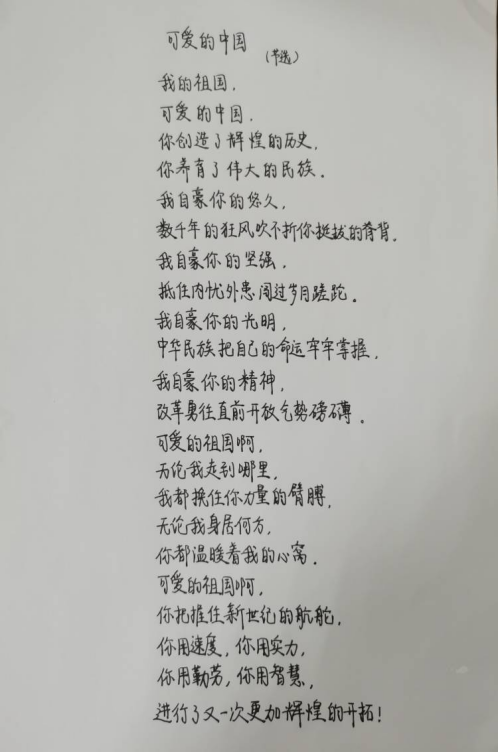 可爱的中国
(节选)
我的祖国，
可爱的中国，
你创造了辉煌的历史，
你养育了伟大的民族。
我自豪你的悠久，
数千年的狂风吹不折你挺拔的脊背，
我自豪你的坚强，
抵住内忧外患闯过岁月蹉跎。
我自豪你的光明，
中华民族把自己的命运牢牢掌握，
我自豪你的精神，
改革勇往直前开放气势磅礴。
可爱的祖国啊，
无论我走到哪里，
我都挽住你力量的臂膊，
无论我身居何方，
你都温暖着我的心窝。
可爱的祖国啊，
你把握住新世纪的航舵，
你用速度，你用实力，
你用勤劳，你用智慧，
进行了又一次更加辉煌的开拓！